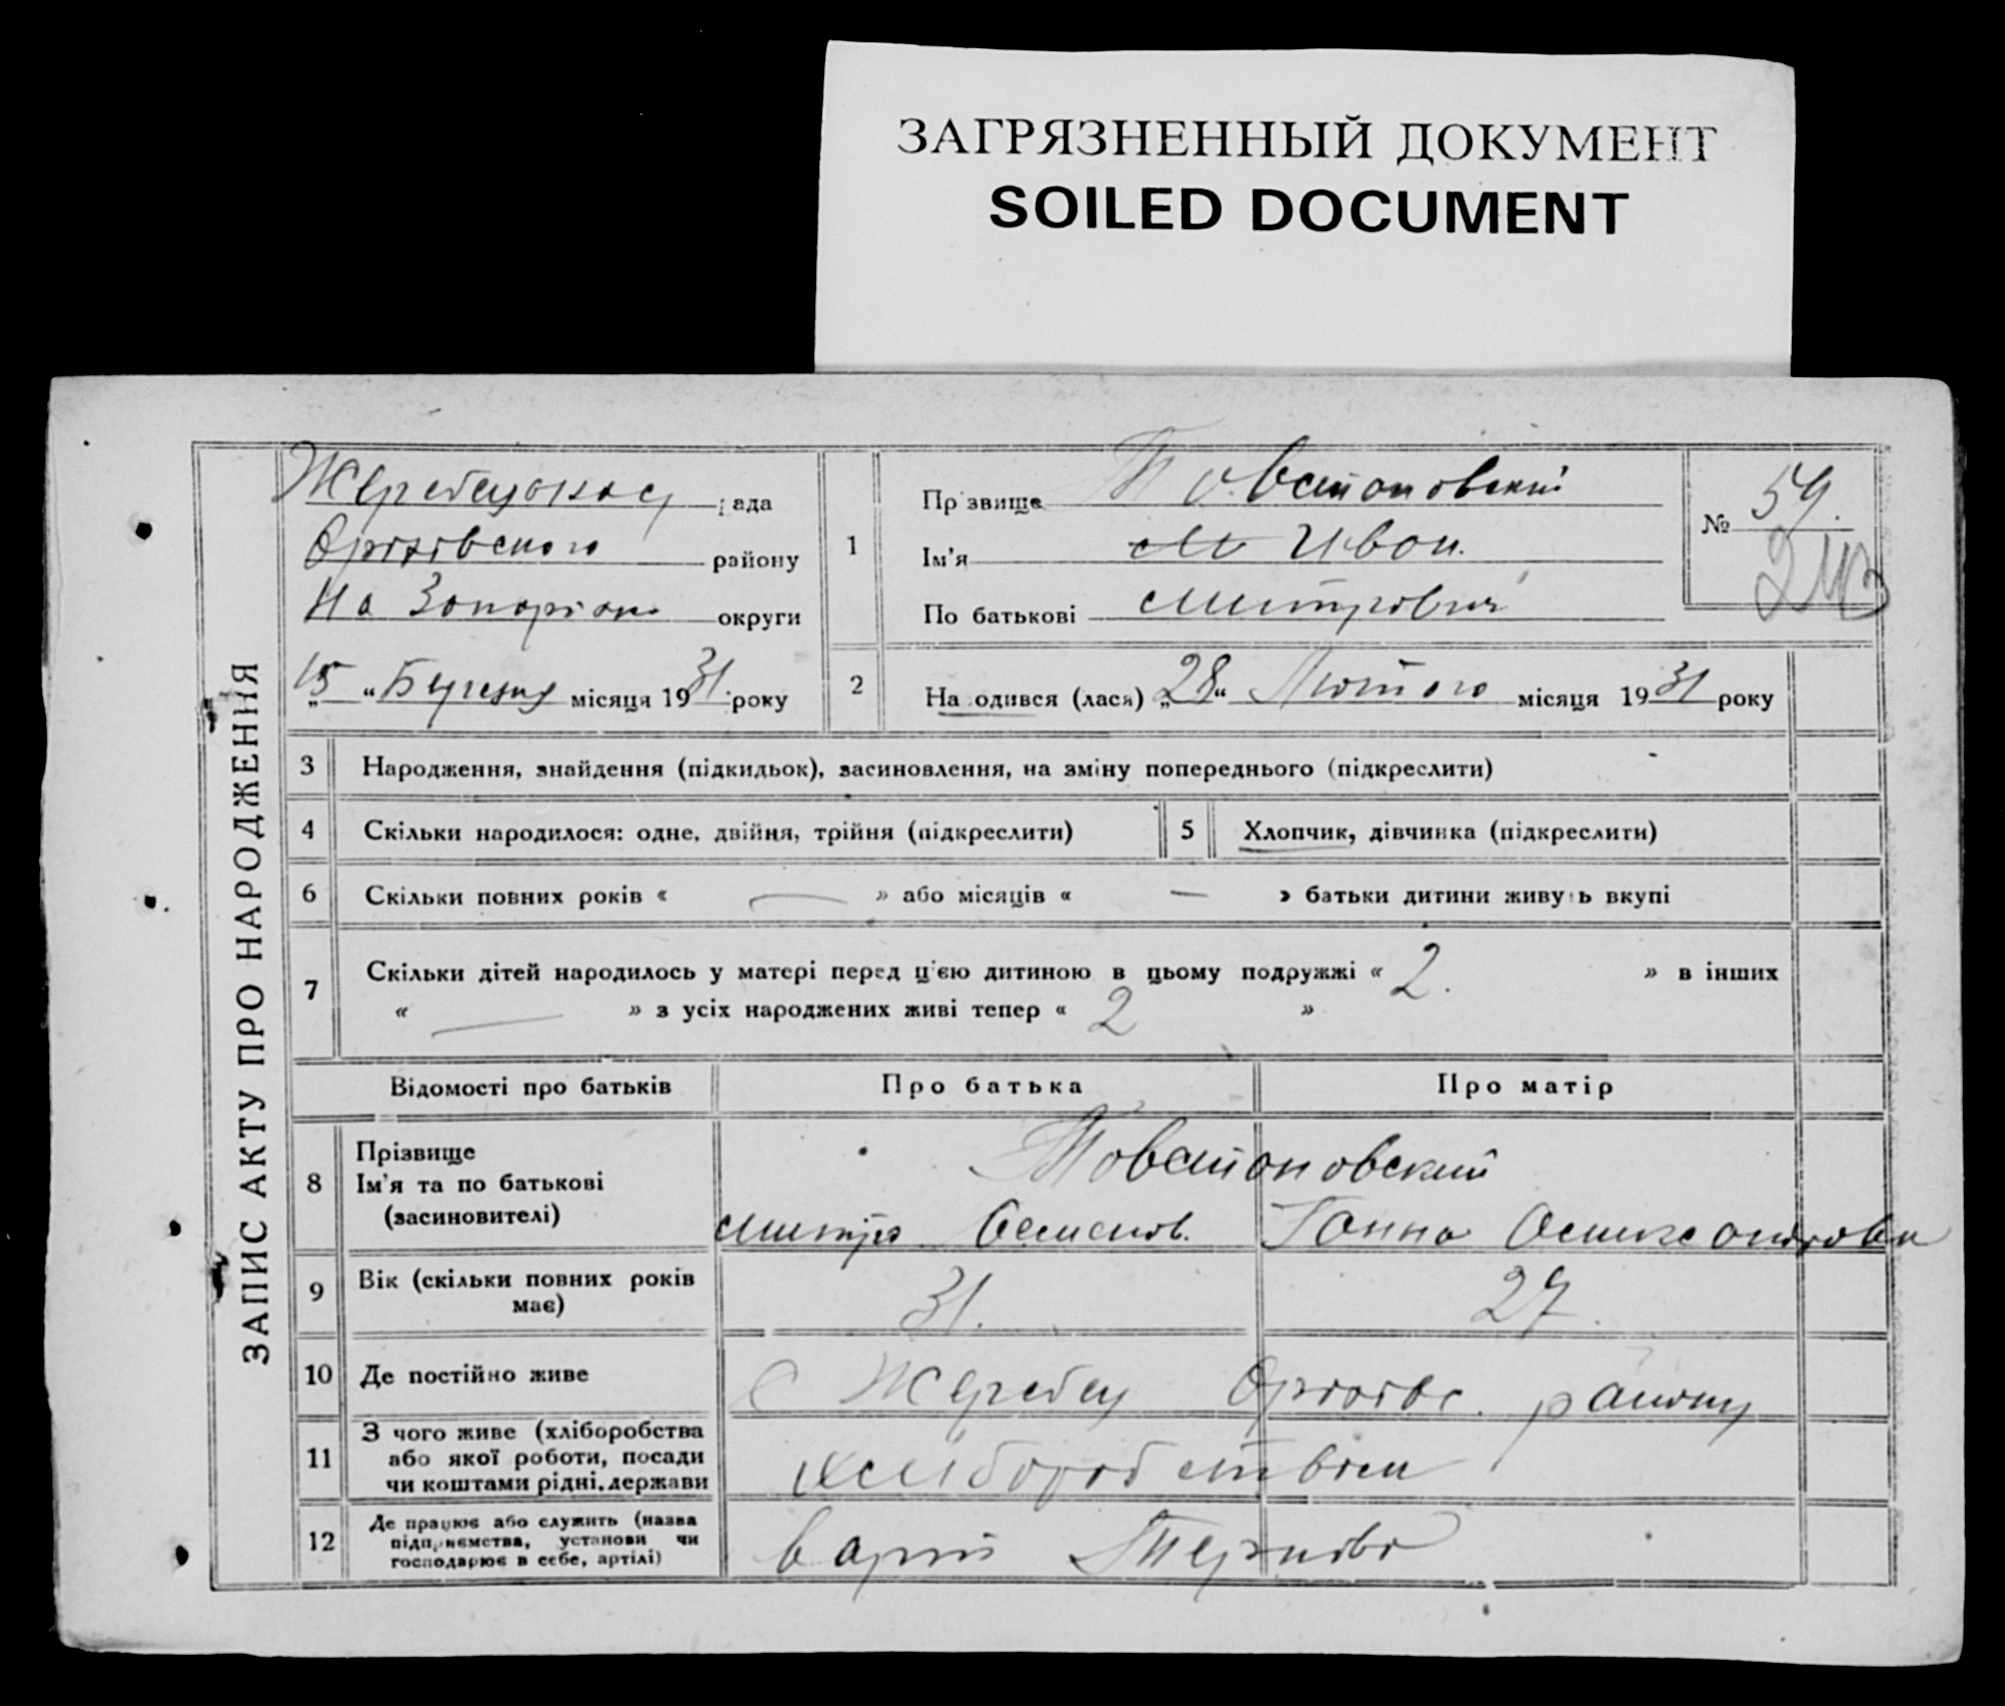 ЗАГРЯЗНЕННЫЙ ДОКУМЕНТ
SOILED DOCUMENT
ЗАПИС АКТУ ПРО НАРОДЖЕННЯ
рада
Оріхівського району
На Запоріжж округи
„15“ Березня місяця 1931. року
1
Прізвище Товстоновский
Ім'я Иван.
По батькові Митрович
№ 59.
2
Народився (лася) „28“ Лютого місяця 1931 року
3 Народження, знайдення (підкидьок), засиновлення, на зміну попереднього (підкреслити)
4 Скільки народилося: одне, двійня, трійня (підкреслити)
5 Хлопчик, дівчинка (підкреслити)
6 Скільки повних років « — » або місяців « — » батьки дитини живуть вкупі
7 Скільки дітей народилось у матері перед ц'єю дитиною в цьому подружжі « 2. » в інших
« — » з усіх народжених живі тепер « 2 »
Відомості про батьків Про батька Про матір
8 Прізвище
Ім'я та по батькові
(засиновителі)
Товстоновский
Митро Семенов. Ганна Олександровн
9 Вік (скільки повних років
має)
31. 27.
10 Де постійно живе
С Жеребец Оріхівс. району
11 З чого живе (хліборобства
або якої роботи, посади
чи коштами рідні, держави
хліборобством
12 Де працює або служить (назва
підприємства, установи чи
господарює в себе, артілі)
в арт